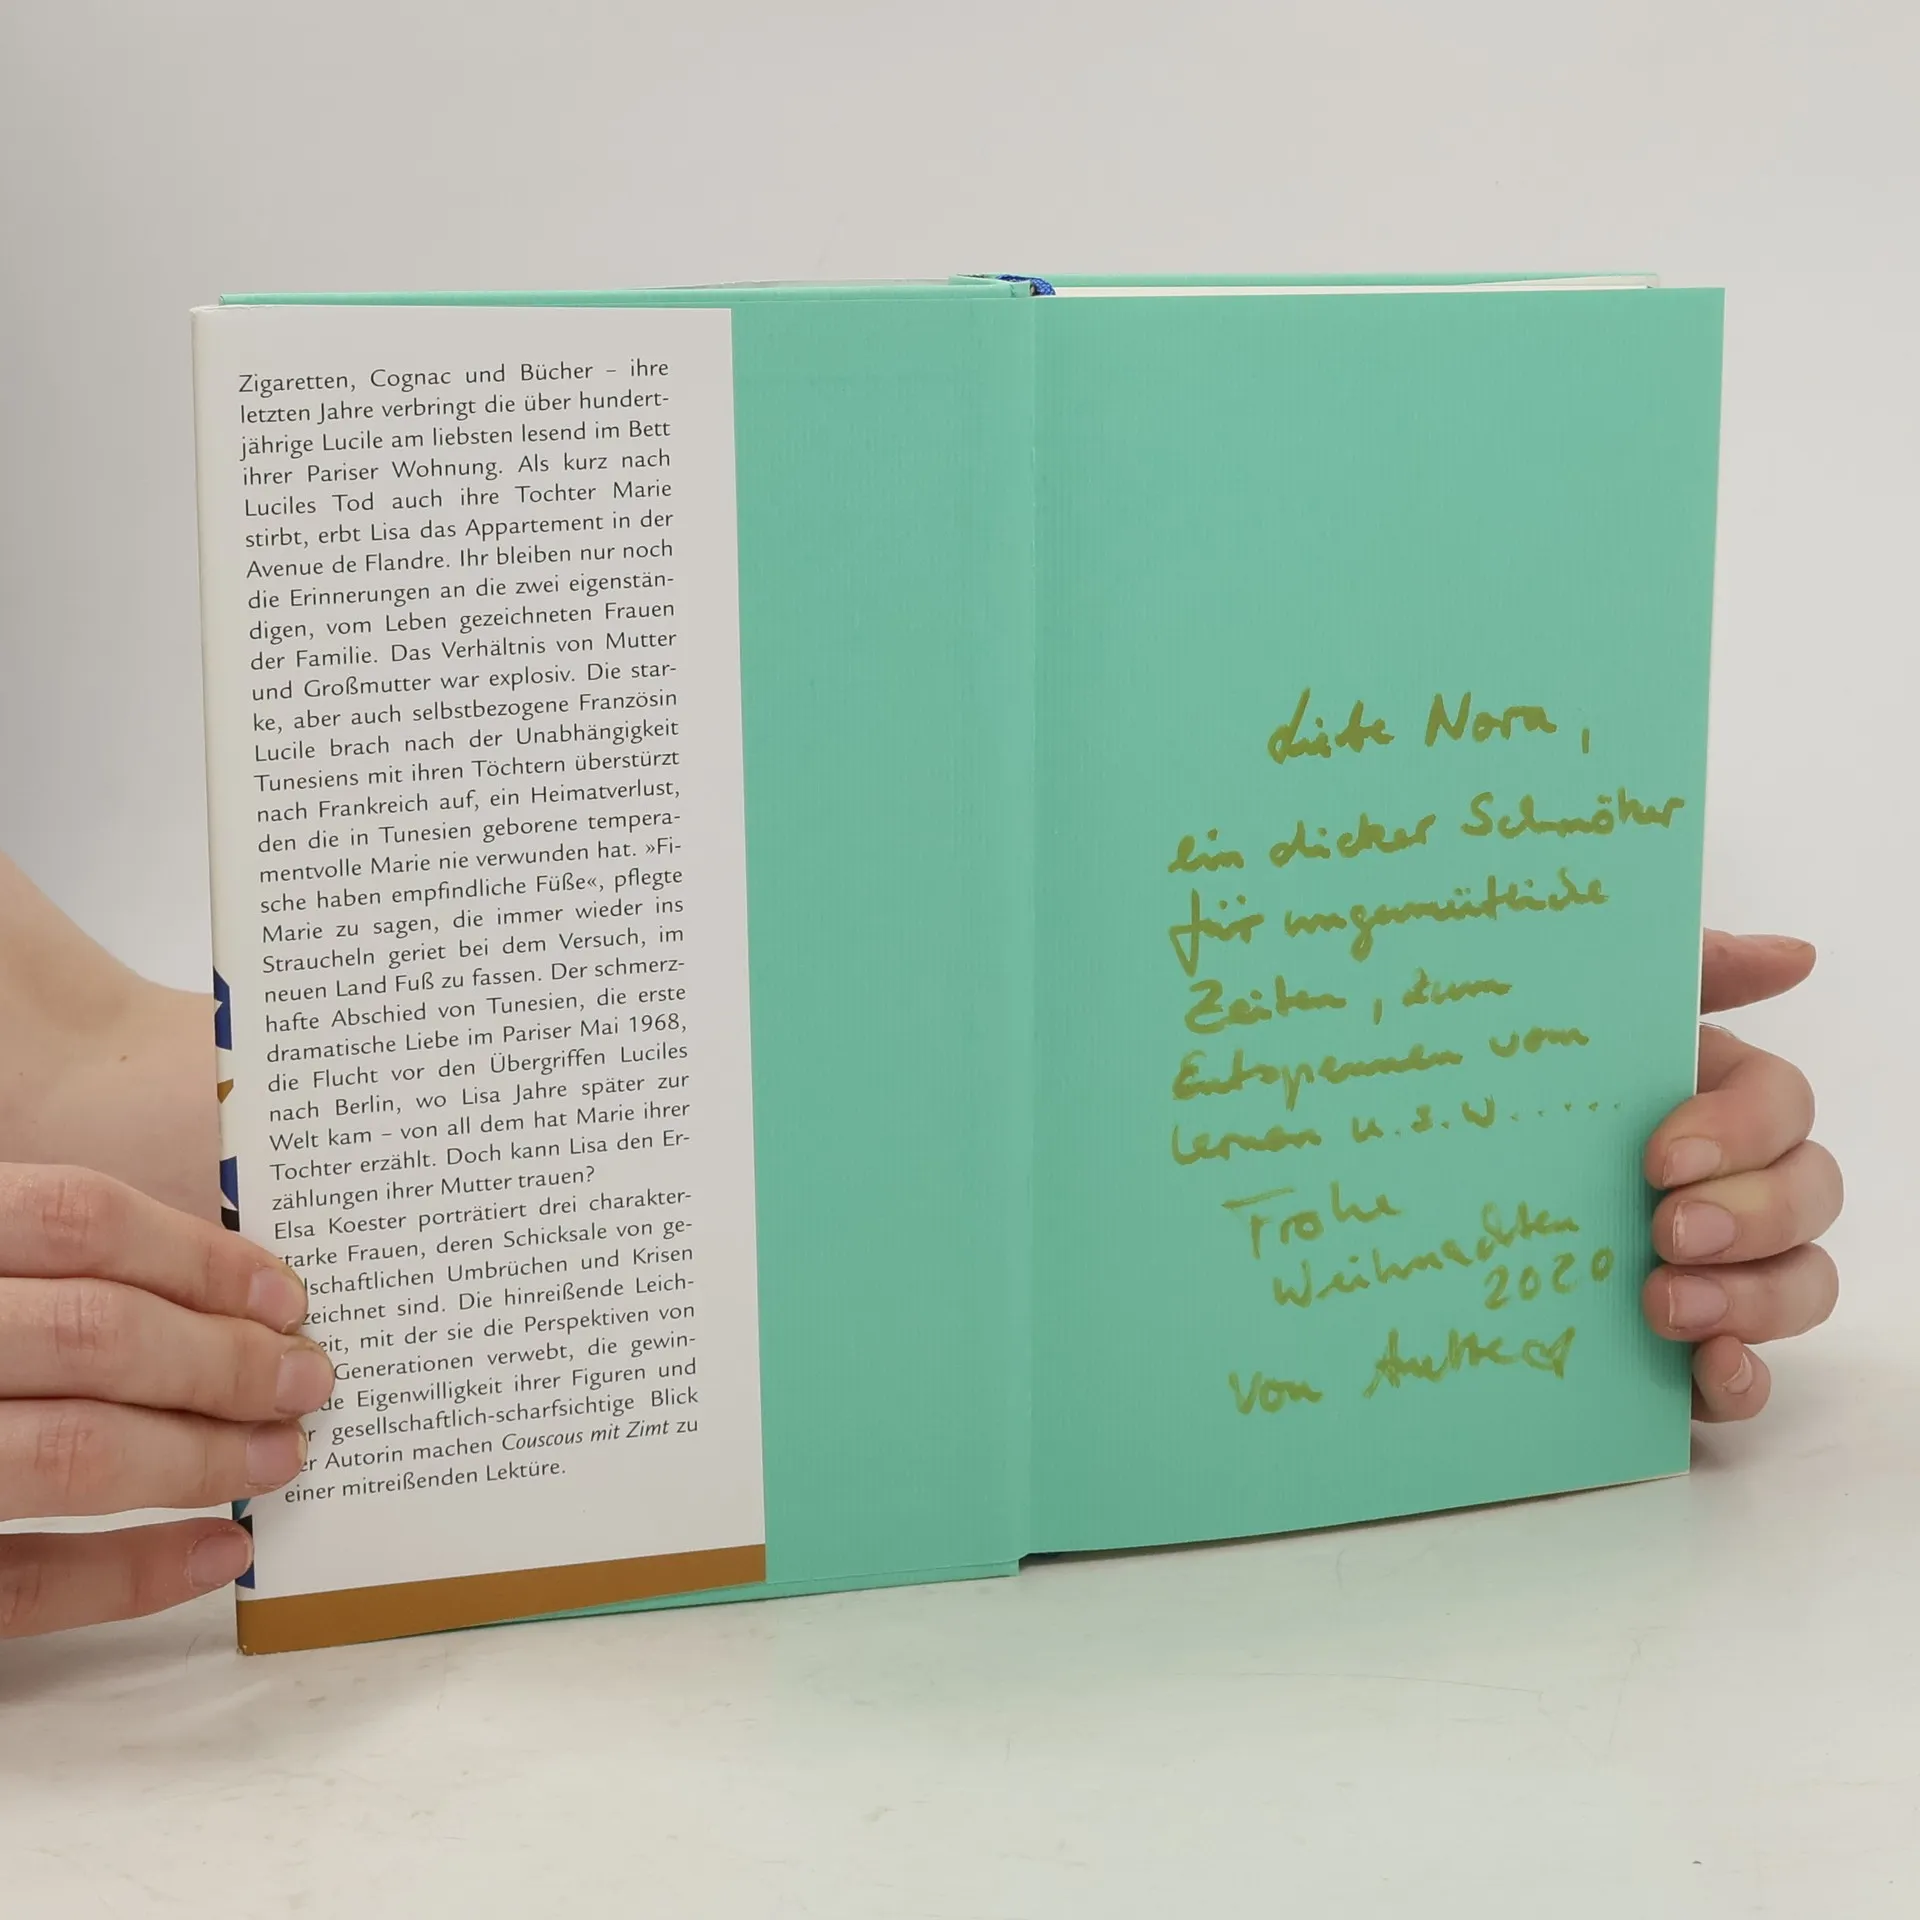 Zigaretten, Cognac und Bücher – ihre
letzten Jahre verbringt die über hundert-
jährige Lucile am liebsten lesend im Bett
ihrer Pariser Wohnung. Als kurz nach
Luciles Tod auch ihre Tochter Marie
stirbt, erbt Lisa das Appartement in der
Avenue de Flandre. Ihr bleiben nur noch
die Erinnerungen an die zwei eigenstän-
digen, vom Leben gezeichneten Frauen
der Familie. Das Verhältnis von Mutter
und Großmutter war explosiv. Die star-
ke, aber auch selbstbezogene Französin
Lucile brach nach der Unabhängigkeit
Tunesiens mit ihren Töchtern überstürzt
nach Frankreich auf, ein Heimatverlust,
den die in Tunesien geborene tempera-
mentvolle Marie nie verwunden hat. »Fi-
sche haben empfindliche Füße«, pflegte
Marie zu sagen, die immer wieder ins
Straucheln geriet bei dem Versuch, im
neuen Land Fuß zu fassen. Der schmerz-
hafte Abschied von Tunesien, die erste
dramatische Liebe im Pariser Mai 1968,
die Flucht vor den Übergriffen Luciles
nach Berlin, wo Lisa Jahre später zur
Welt kam – von all dem hat Marie ihrer
Tochter erzählt. Doch kann Lisa den Er-
zählungen ihrer Mutter trauen?
Elsa Koester porträtiert drei charakter-
tarke Frauen, deren Schicksale von ge-
lschaftlichen Umbrüchen und Krisen
zeichnet sind. Die hinreißende Leich-
eit, mit der sie die Perspektiven von
Generationen verwebt, die gewin-
de Eigenwilligkeit ihrer Figuren und
r gesellschaftlich-scharfsichtige Blick
er Autorin machen Couscous mit Zimt zu
einer mitreißenden Lektüre.
Liebe Nora,
ein dicker Schmöker
für ungemütliche
Zeiten, zum
Entspannen vom
Lernen u.s.w......
Frohe
Weihnachten
2020
von Anette